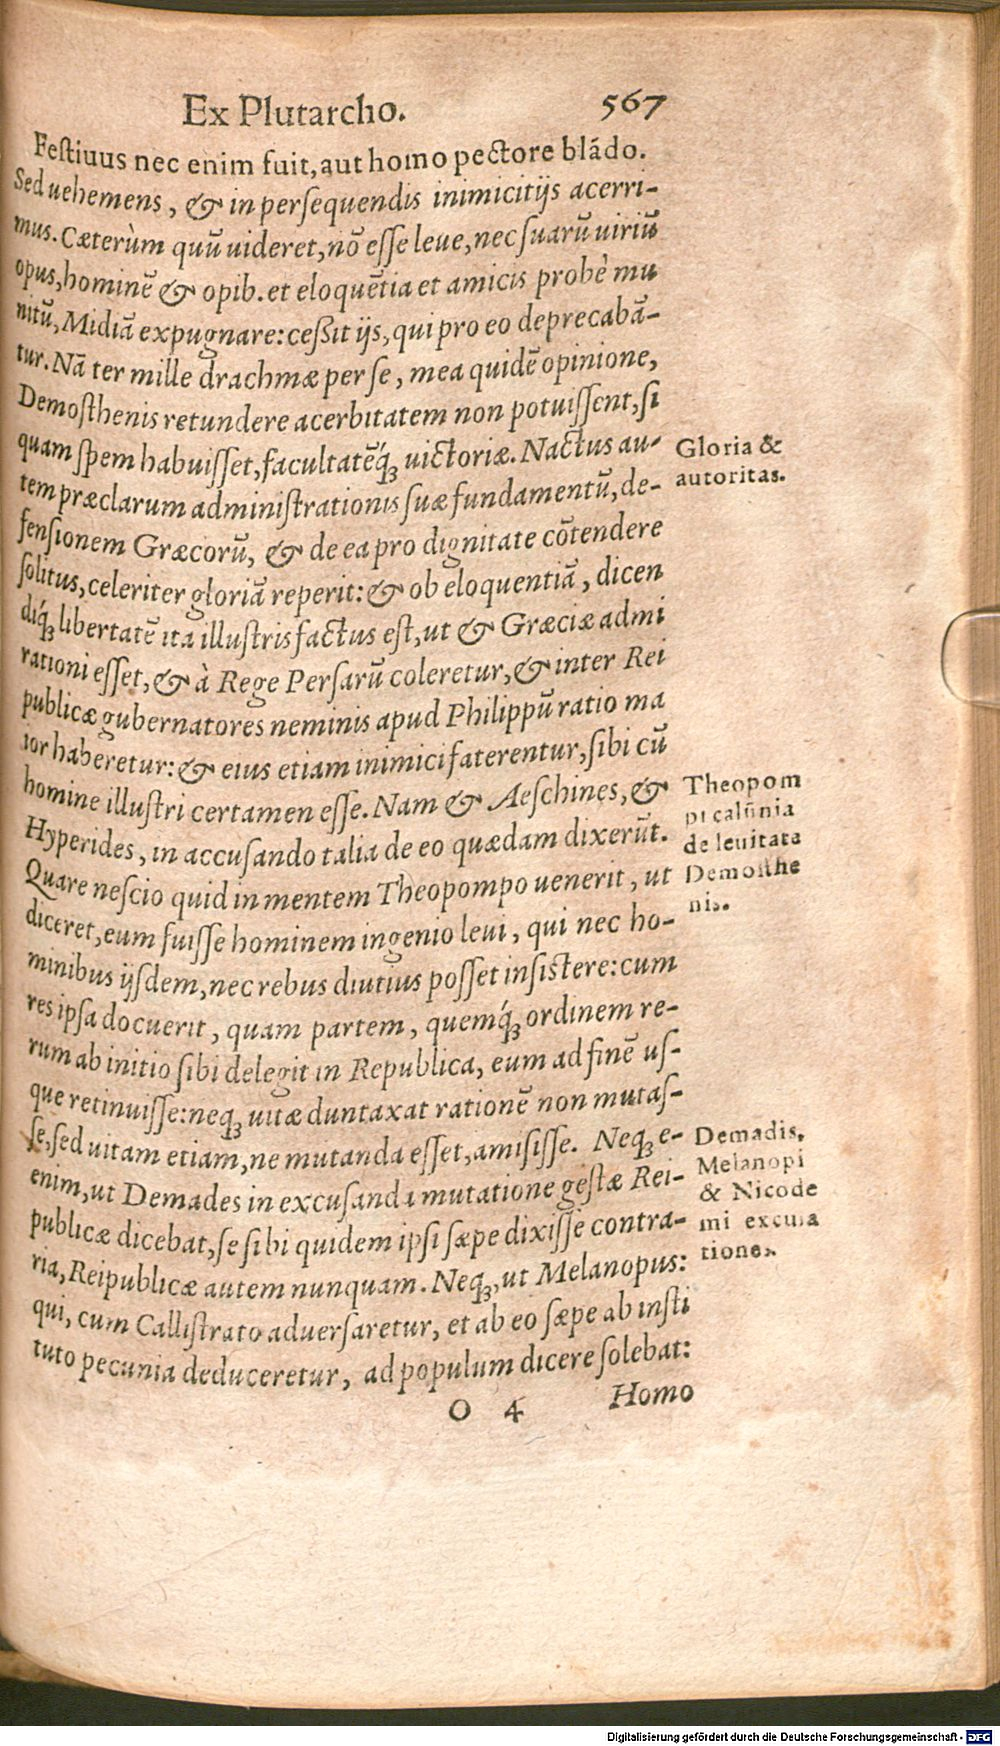 Ex Plutarcho. 567
Feſtiuus nec enim fuit, aut homo pectore blãdo.
Sed uehemens, & in perſequendis inimicitijs acerri-
mus. Cæterùm quũ uideret, nõ eſſe leue, nec ſuarũ uiriũ
opus, hominẽ & opib. et eloquẽtia et amicis probè mu
nitũ, Midiã expugnare: ceßit ijs, qui pro eo deprecabã-
tur. Nã ter mille drachmæ per ſe, mea quidẽ opinione,
Demoſthenis retundere acerbitatem non potuiſſent, ſi
quam ſpem habuiſſet, facultatẽq́ꝫ uictoriæ. Nactus au-
tem præclarum adminiſtrationis ſuæ fundamentũ, de-
fenſionem Græcorũ, & de ea pro dignitate cõtendere
ſolitus, celeriter gloriã reperit: & ob eloquentiã, dicen
diq́ꝫ libertatẽ ita illuſtris factus eſt, ut & Græciæ admi
rationi eſſet, & à Rege Perſarũ coleretur, & inter Rei
publicæ gubernatores neminis apud Philippũ ratio ma
ior haberetur: & eius etiam inimici faterentur, ſibi cũ
homine illuſtri certamen eſſe. Nam & Aeſchines, &
Hyperides, in accuſando talia de eo quædam dixerũt.
Quare neſcio quid in mentem Theopompo uenerit, ut
diceret, eum fuiſſe hominem ingenio leui, qui nec ho-
minibus ijsdem, nec rebus diutius poſſet inſiſtere: cum
res ipſa docuerit, quam partem, quemq́ꝫ ordinem re-
rum ab initio ſibi delegit in Republica, eum ad finẽ uſ-
que retinuiſſe: neqꝫ uitæ duntaxat rationẽ non mutaſ-
ſe, ſed uitam etiam, ne mutanda eſſet, amiſiſſe. Neqꝫ e-
enim, ut Demades in excuſanda mutatione geſtæ Rei-
publicæ dicebat, ſe ſibi quidem ipſi ſæpe dixiſſe contra-
ria, Reipublicæ autem nunquam. Neqꝫ, ut Melanopus:
qui, cum Calliſtrato aduerſaretur, et ab eo ſæpe ab inſti
tuto pecunia deduceretur, ad populum dicere ſolebat:
O 4 Homo
Gloria &
autoritas.
Theopom
pi calũnia
de leuitate
Demoſthe
nis.
Demadis,
Melanopi
& Nicode
mi excuſa
tiones.
Digitalisierung gefördert durch die Deutsche Forschungsgemeinschaft - DFG